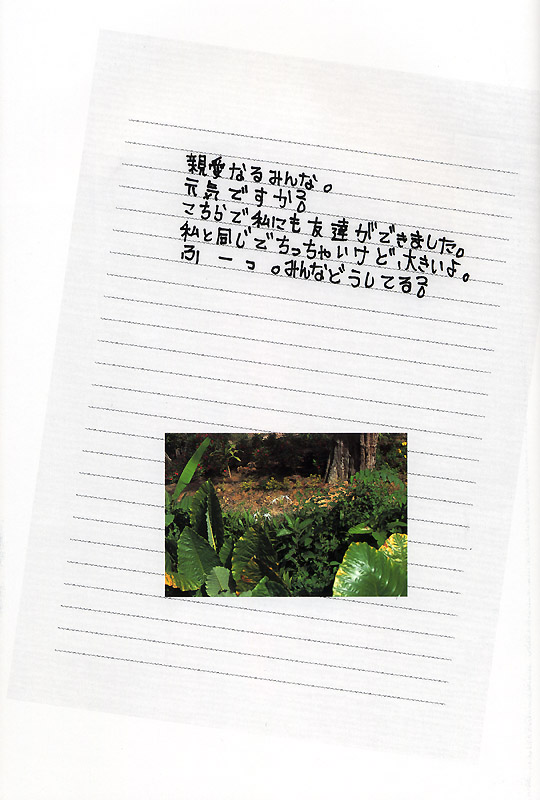 親愛なるみんな。
元気ですか?
こちらで私にも友達ができました。
私と同じでちっちゃいけど、大きいよ。
ふーっ。みんなどうしてる?